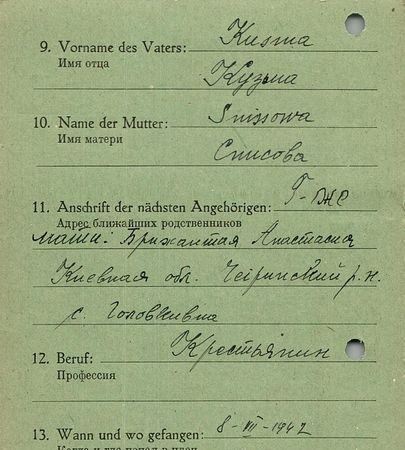 9. Vorname des Vaters: Kusma
Имя отца
Кузьма
10. Name der Mutter: Snissowa
Имя матери
Снисова
11. Anschrift der nächsten Angehörigen:
Адрес ближайших родственников
Анастасия
Киевская обл. р.н.
с. Головкивка
12. Beruf: Крестьянин
Профессия
13. Wann und wo gefangen: 8-VIII-1942
Когда и где попал в плен